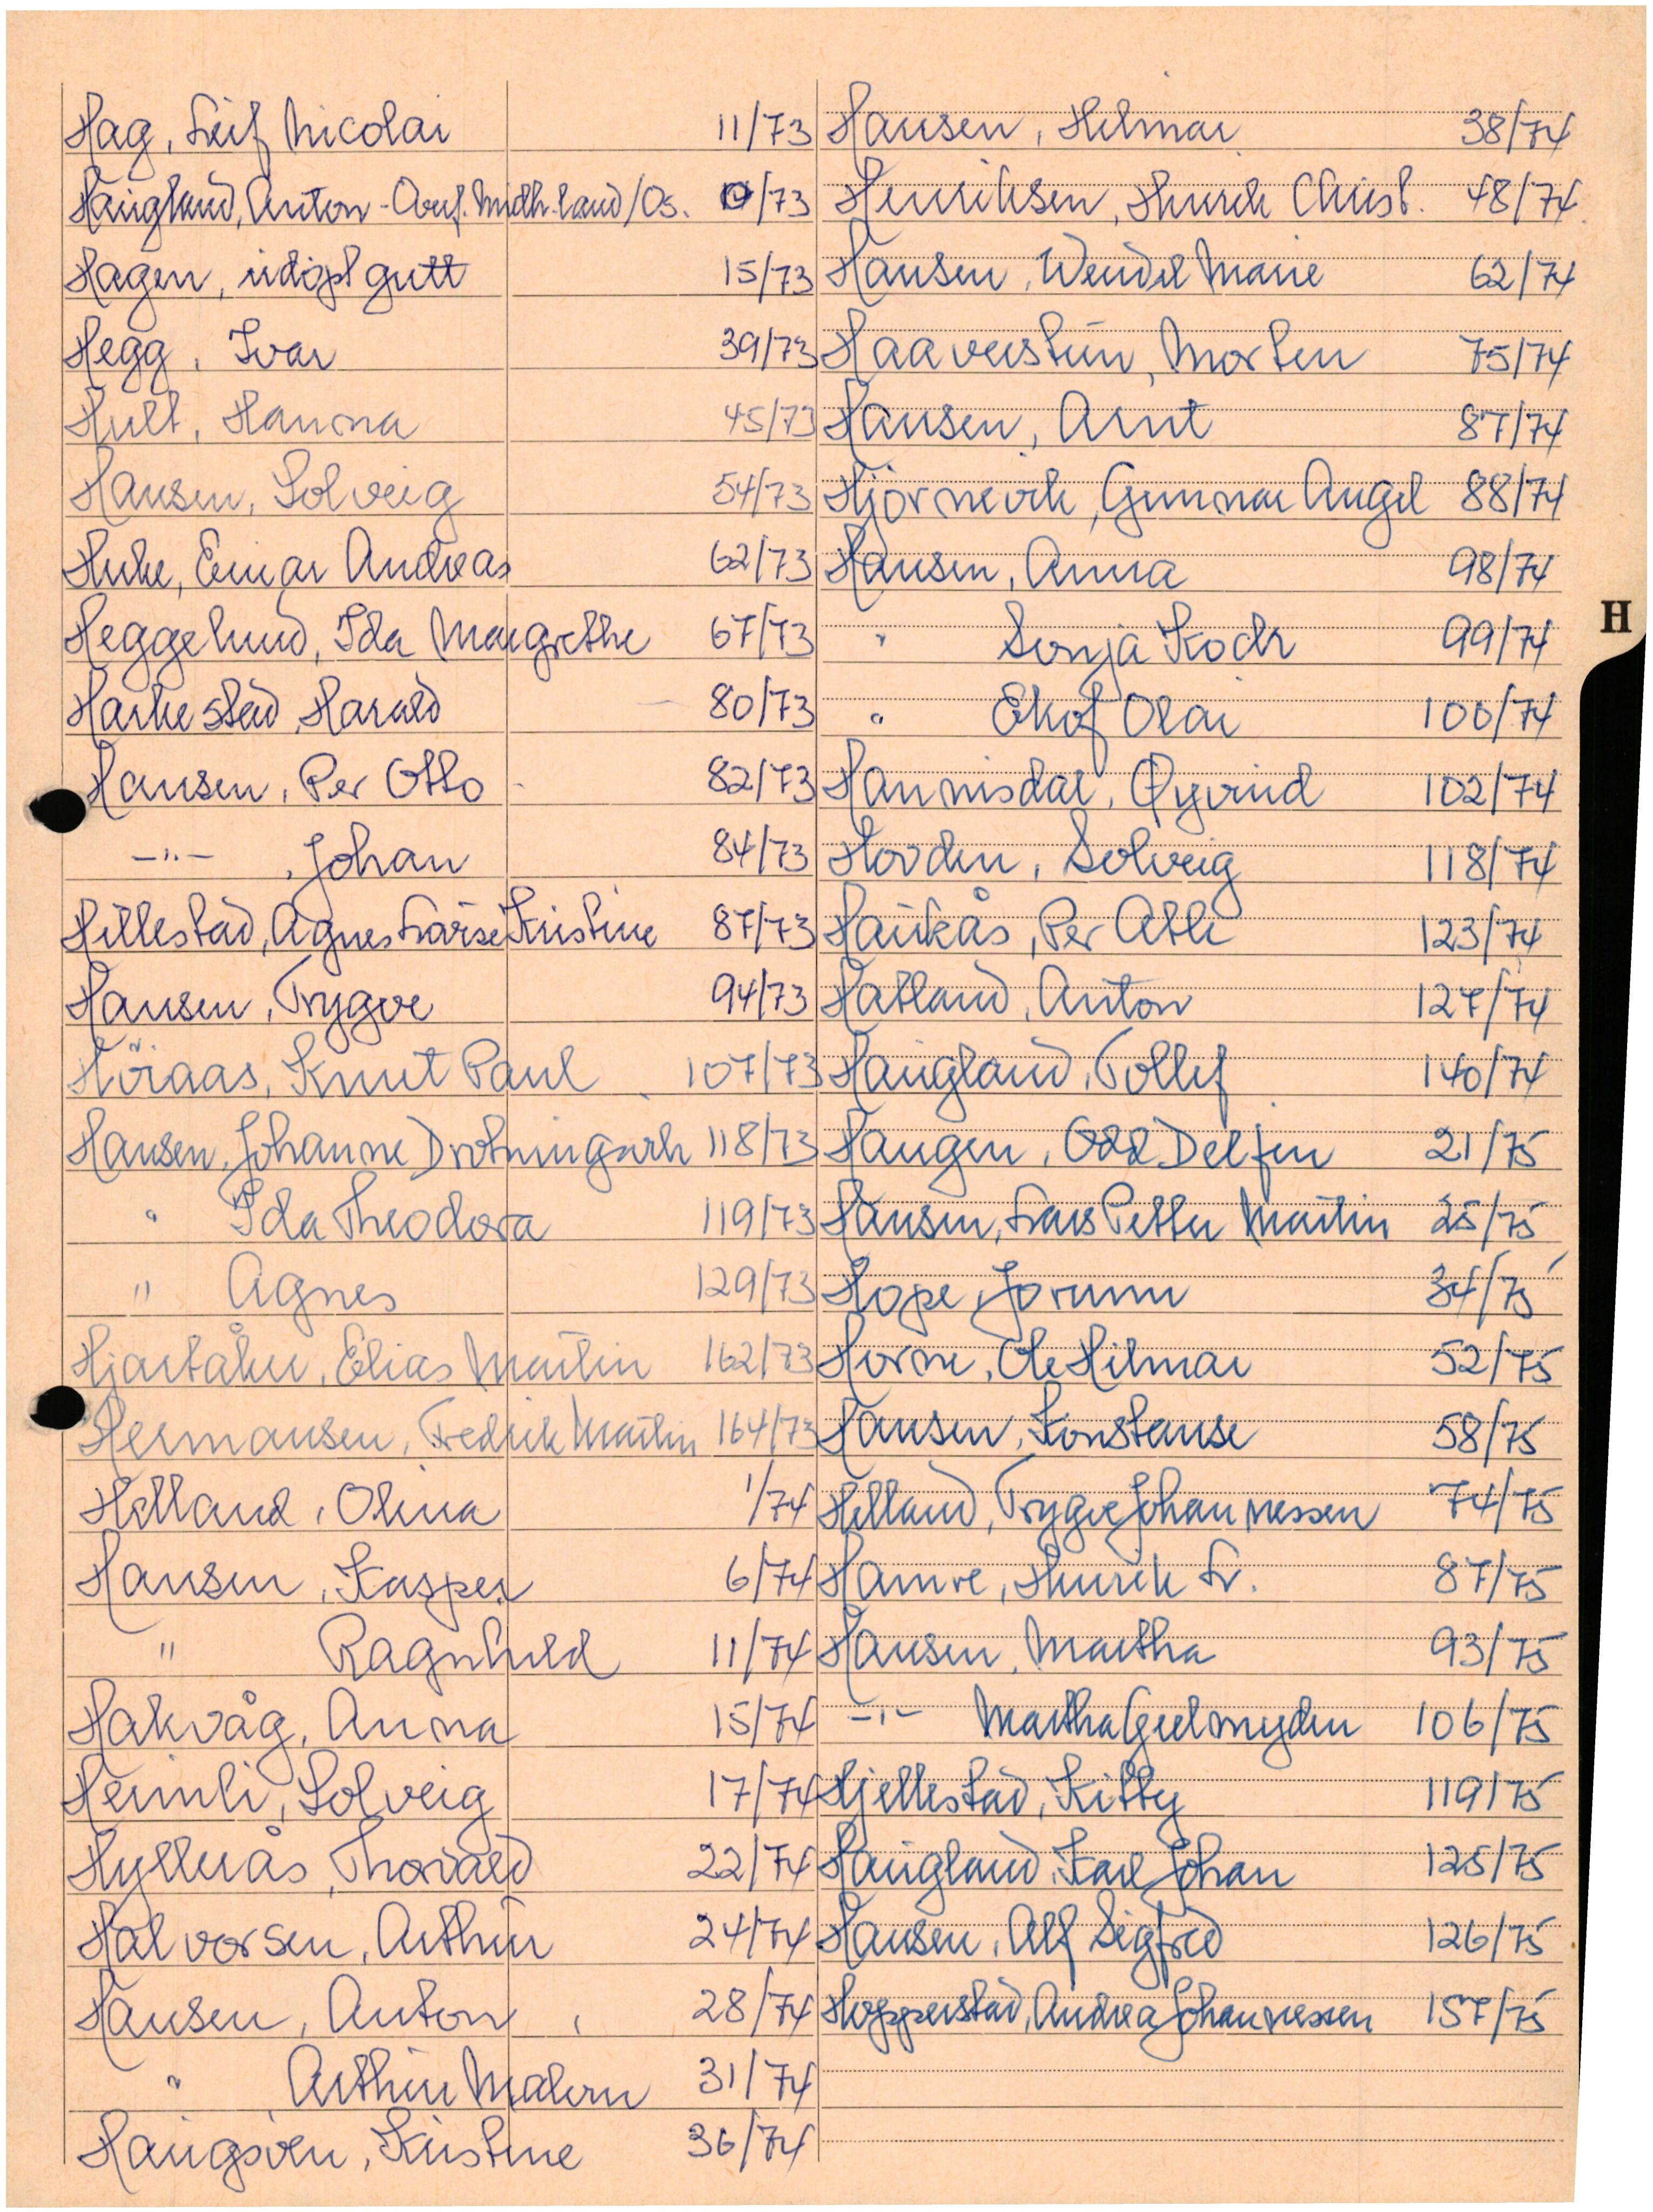 Hag, Leif Nicolai 11/73
Haugland, Anton - Overf. Midth.land/Os. /73
Hagen, udøpt gutt 15/73
Hegg, Ivar 39/73
Hult, Hanna 45/73
Hansen, Solveig 54/73
Huke, Einar Andreas 62/73
Heggelund, Ida Margrethe 67/73
Harkestad, Harald 80/73
Hansen, Per Otto 82/73
-"- , Johan 84/73
Hillestad, Agnes Kristine 87/73
Hansen, Trygve 94/73
Høiaas, Knut Paul 107/73
Hansen, Johanne Drotningsvik 118/73
" Ida Theodora 119/73
" Agnes 129/73
Hjartåker, Elias Martin 162/73
Hermansen, Fredrik Martin 164/73
Helland, Olina 1/74
Hansen, Kasper 6/74
" Ragnhild 11/74
Hakvåg, Anna 15/74
Heimli, Solveig 17/74
Hyllerås, Thorvald 22/74
Halvorsen, Arthur 24/74
Hansen, Anton 28/74
" , Arthur Malern 31/74
Haugsøen, Kristine 36/74
Hansen, Helmar 38/74
Henriksen, Henrik Christ. 48/74
Hansen, Wendel Marie 62/74
Haaverstein, Morten 75/74
Hansen, Arnt 87/74
Hjørnevik, Gunnar Angel 88/74
Hansen, Anna 98/74
" Sonja Koch 99/74
" Ekof Olai 100/74
Hannisdal, Øyvind 102/74
Hovden, Solveig 118/74
Haukås, Per Atle 123/74
Hatland, Anton 127/74
Haugland, Tollef 140/74
Haugen, Odd Delfin 21/75
Hansen, Lars Petter Martin 25/75
Hope, Jorunn 34/75
Horne, Ole Hilmar 52/75
Hansen, Konstanse 58/75
Helland, Trygve Johannessen 74/75
Hamre, Henrik Sr. 87/75
Hansen, Martha 93/75
-"- Martha Gjelmyden 106/75
Hjellestad, Kitty 119/75
Haugland, Karl Johan 125/75
Hansen, Alf Sigfred 126/75
Hopperstad, Andrea Johannessen 157/75
H